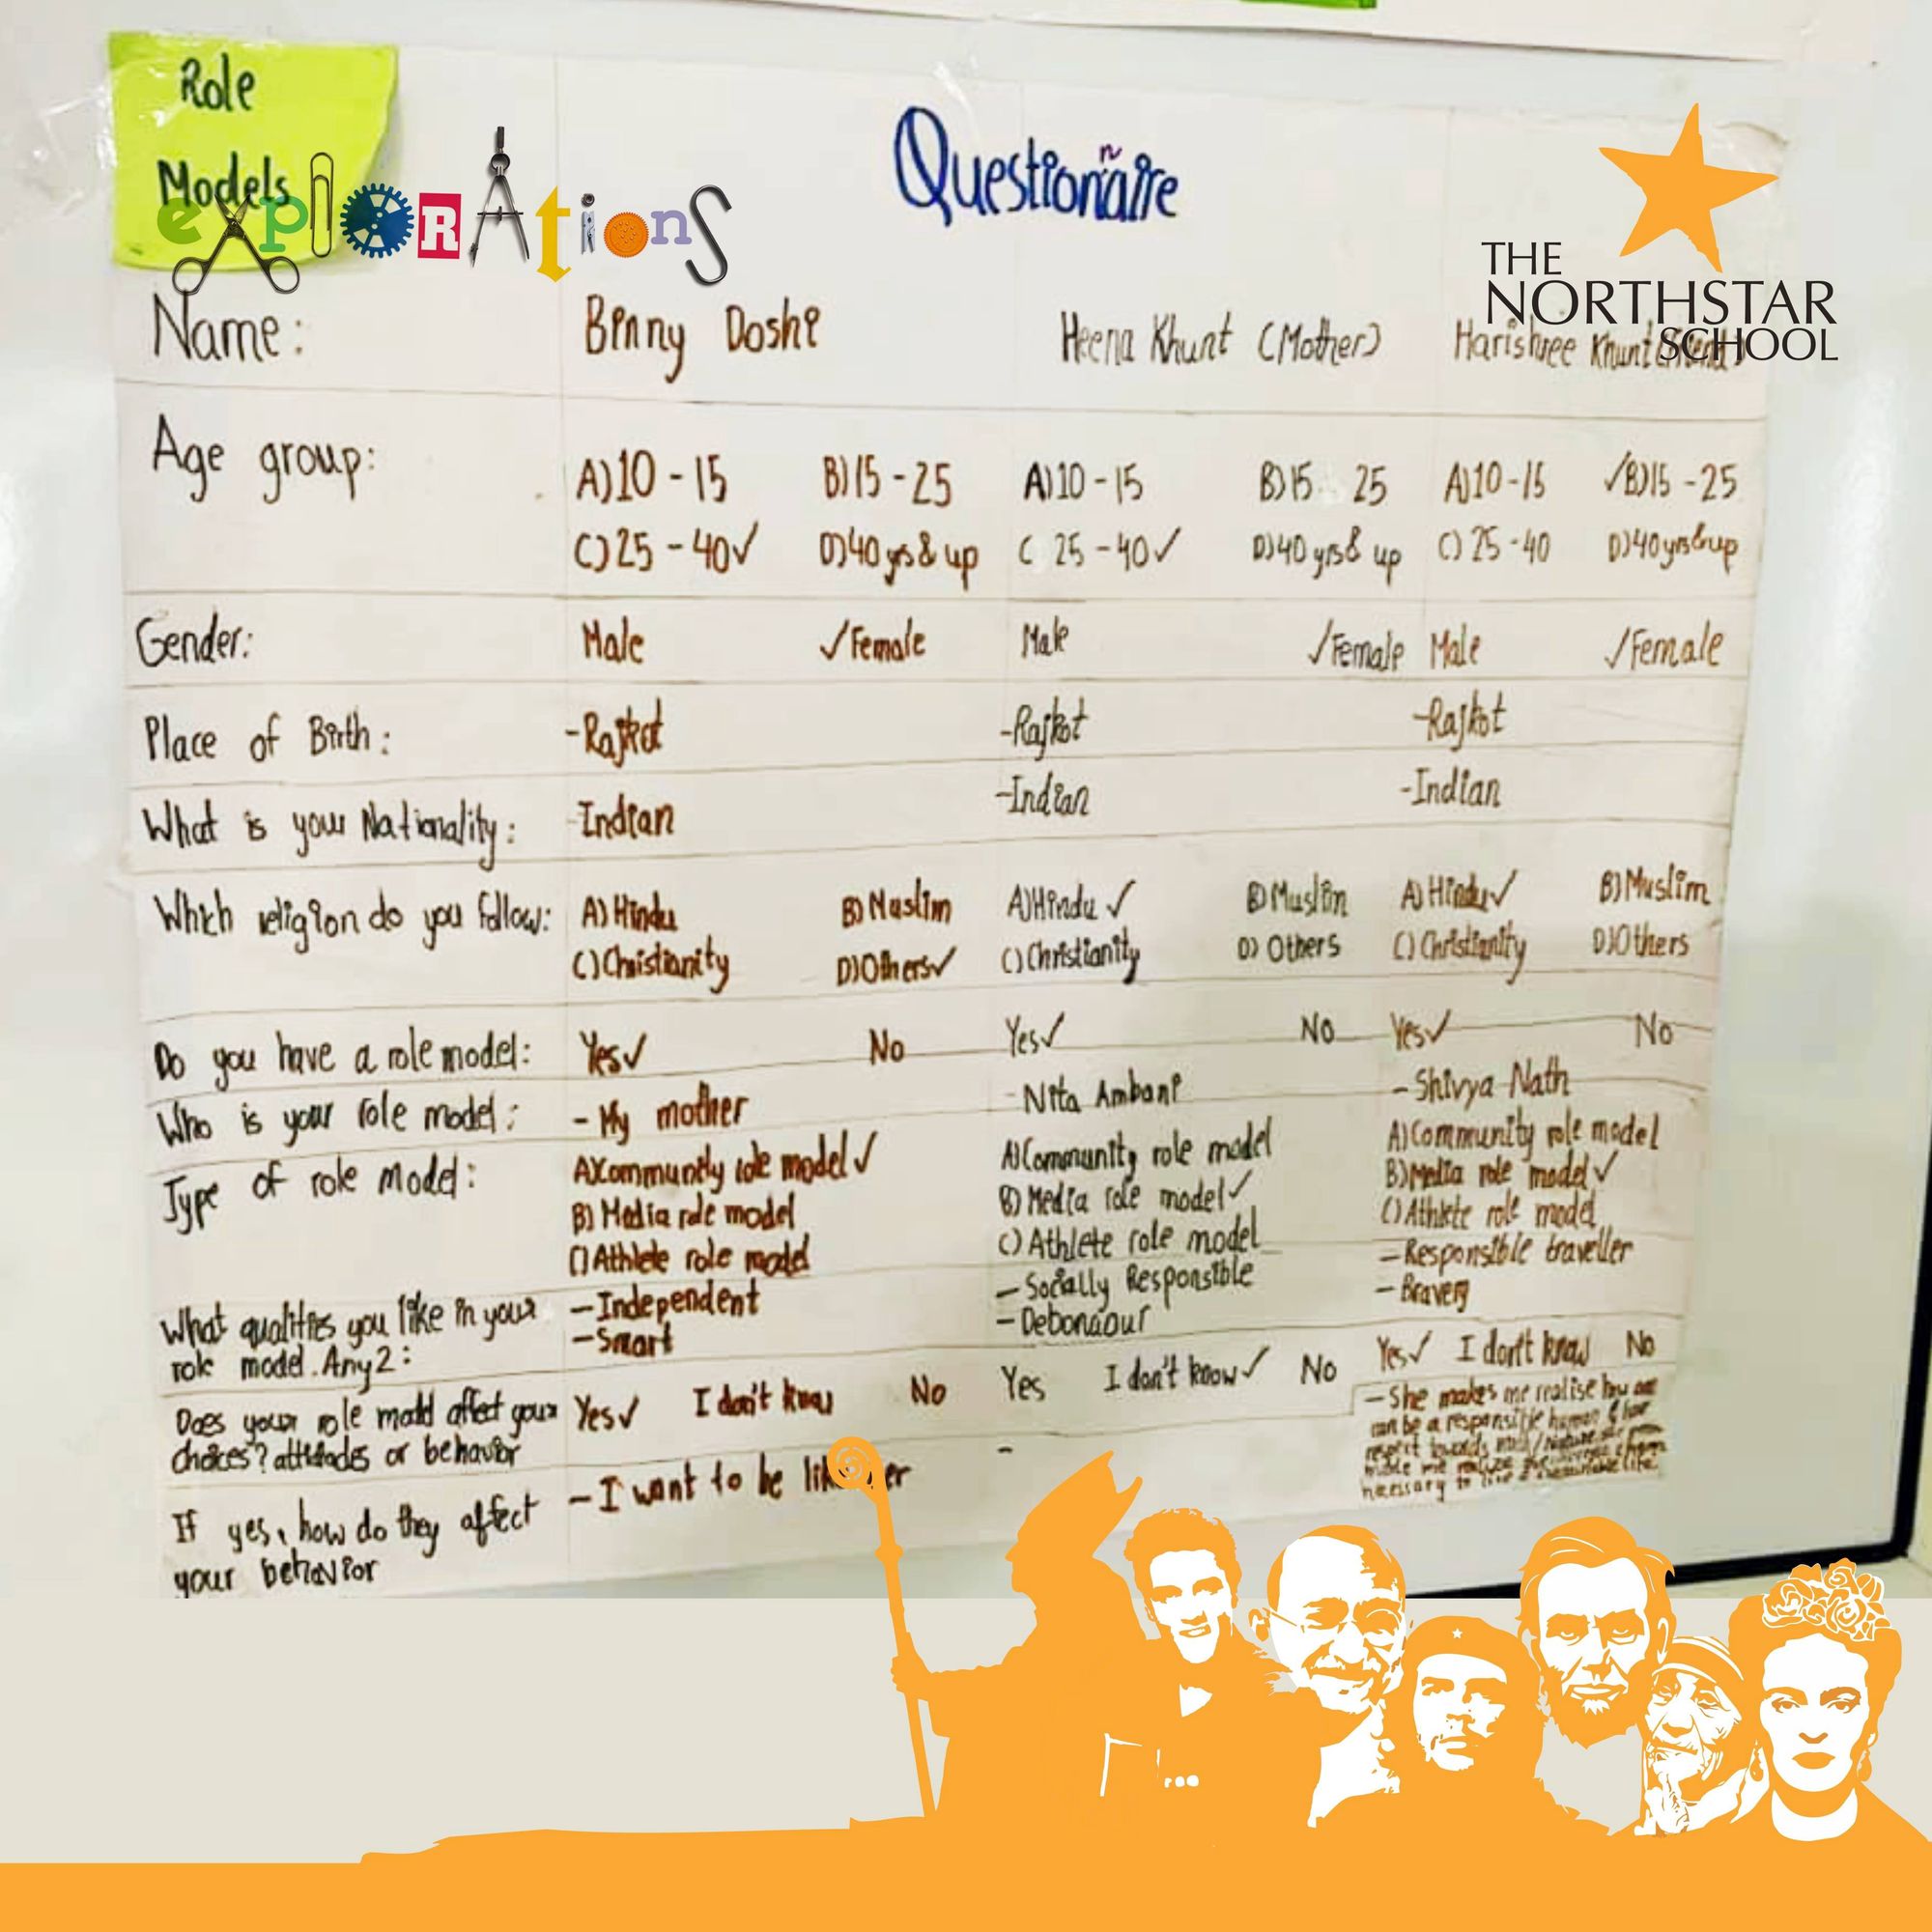 Role
Models
explorations
Questionaire
n
THE
NORTHSTAR
SCHOOL
Name: Binny Doshi Heena Khunt (Mother) Harishree Khunt
Age group: A) 10 - 15 B) 15 - 25 A) 10 - 15 B) 15 25 A) 10 - 15 ✓B) 15 - 25
C) 25 - 40✓ D) 40 yrs & up C 25 - 40✓ D) 40 yrs & up C) 25 - 40 D) 40 yrs & up
Gender: Male ✓Female Male ✓Female Male ✓Female
Place of Birth: -Rajkot -Rajkot -Rajkot
What is your Nationality: -Indian -Indian -Indian
Which religion do you follow: A) Hindu B) Muslim A) Hindu ✓ B) Muslim A) Hindu✓ B) Muslim
C) Christianity D) Others✓ C) Christianity D) Others C) Christianity D) Others
Do you have a role model: Yes✓ No Yes✓ No Yes✓ No
Who is your role model: - My mother - Nita Ambani - Shivya Nath
Type of role model: A) Community role model✓ A) Community role model A) Community role model
B) Media role model B) Media role model✓ B) Media role model✓
C) Athlete role model C) Athlete role model C) Athlete role model
What qualities you like in your - Independent - Socially Responsible - Responsible traveller
role model. Any 2: - Smart - Debonaour - Bravery
Does your role model affect your Yes✓ I don't know No Yes I don't know✓ No Yes✓ I don't know No
choices? attitudes or behavior
If yes, how do they affect - I want to be like her - - She makes me realise how one
your behavior can be a responsible human &
respect towards
made me realize
necessary to live a life.